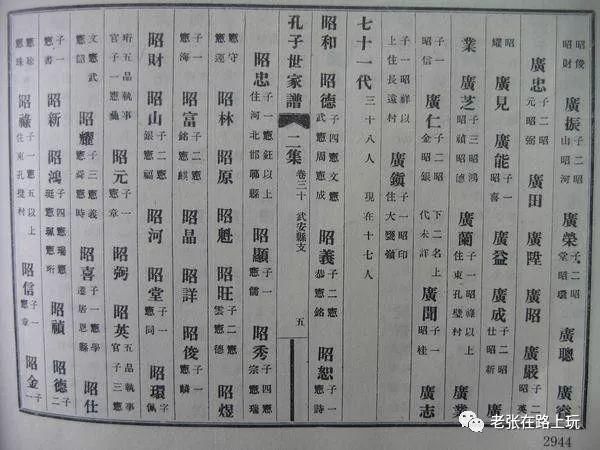 昭俊昭財 廣振 子二昭山昭河 廣榮 子二昭堂昭環 廣聰 廣睿
廣忠 子二昭元昭弼 廣田 廣陞 廣昭 廣嚴 子二昭英
昭耀 廣見 廣能 子一昭喜 廣益 廣成 子二昭仕昭新 廣
業 廣芝 子三昭鴻昭禎昭德 廣蘭 子一昭祿以上住東孔壁村 廣業
子一昭信 廣仁 子二昭金昭銀 下二名上代未詳 廣聞 子一昭桂 廣志
子一昭祥以上住長遠村 廣鎮 子一昭印住大甕嶺
七十一代 三十八人 現在十七人
昭和 昭德 子四憲文憲武憲周憲成 昭義 子二憲恭憲銘 昭恕 子一憲詩
孔子世家譜 二集 卷三十 武安縣支 五
昭忠 子一憲鈺以上住河北邯鄲縣 昭顯 子一憲儒 昭秀 子四憲宗憲瑞
憲守憲蓮 昭林 昭原 昭魁 昭旺 子二憲雲憲德 昭煜
子一憲海 昭富 子二憲銘憲麒 昭晶 昭詳 昭俊 子一憲麟
昭財 昭山 子二憲銀憲福 昭河 昭堂 子一憲同 昭環 字佩
珩五品執事官子一憲彝 昭元 子一憲章 昭弼 昭英 五品執事官子三憲
文憲武憲韶 昭耀 子三憲義憲舜憲時 昭喜 子一憲學遷居恩縣 昭仕
子一憲書 昭新 昭鴻 子四憲瑞憲珽憲珮憲珩 昭禎 昭德 子二
憲珍憲珠 昭祿 子一憲五以上住東孔壁村 昭信 子一憲章 昭金 子一
2944
老张在路上玩